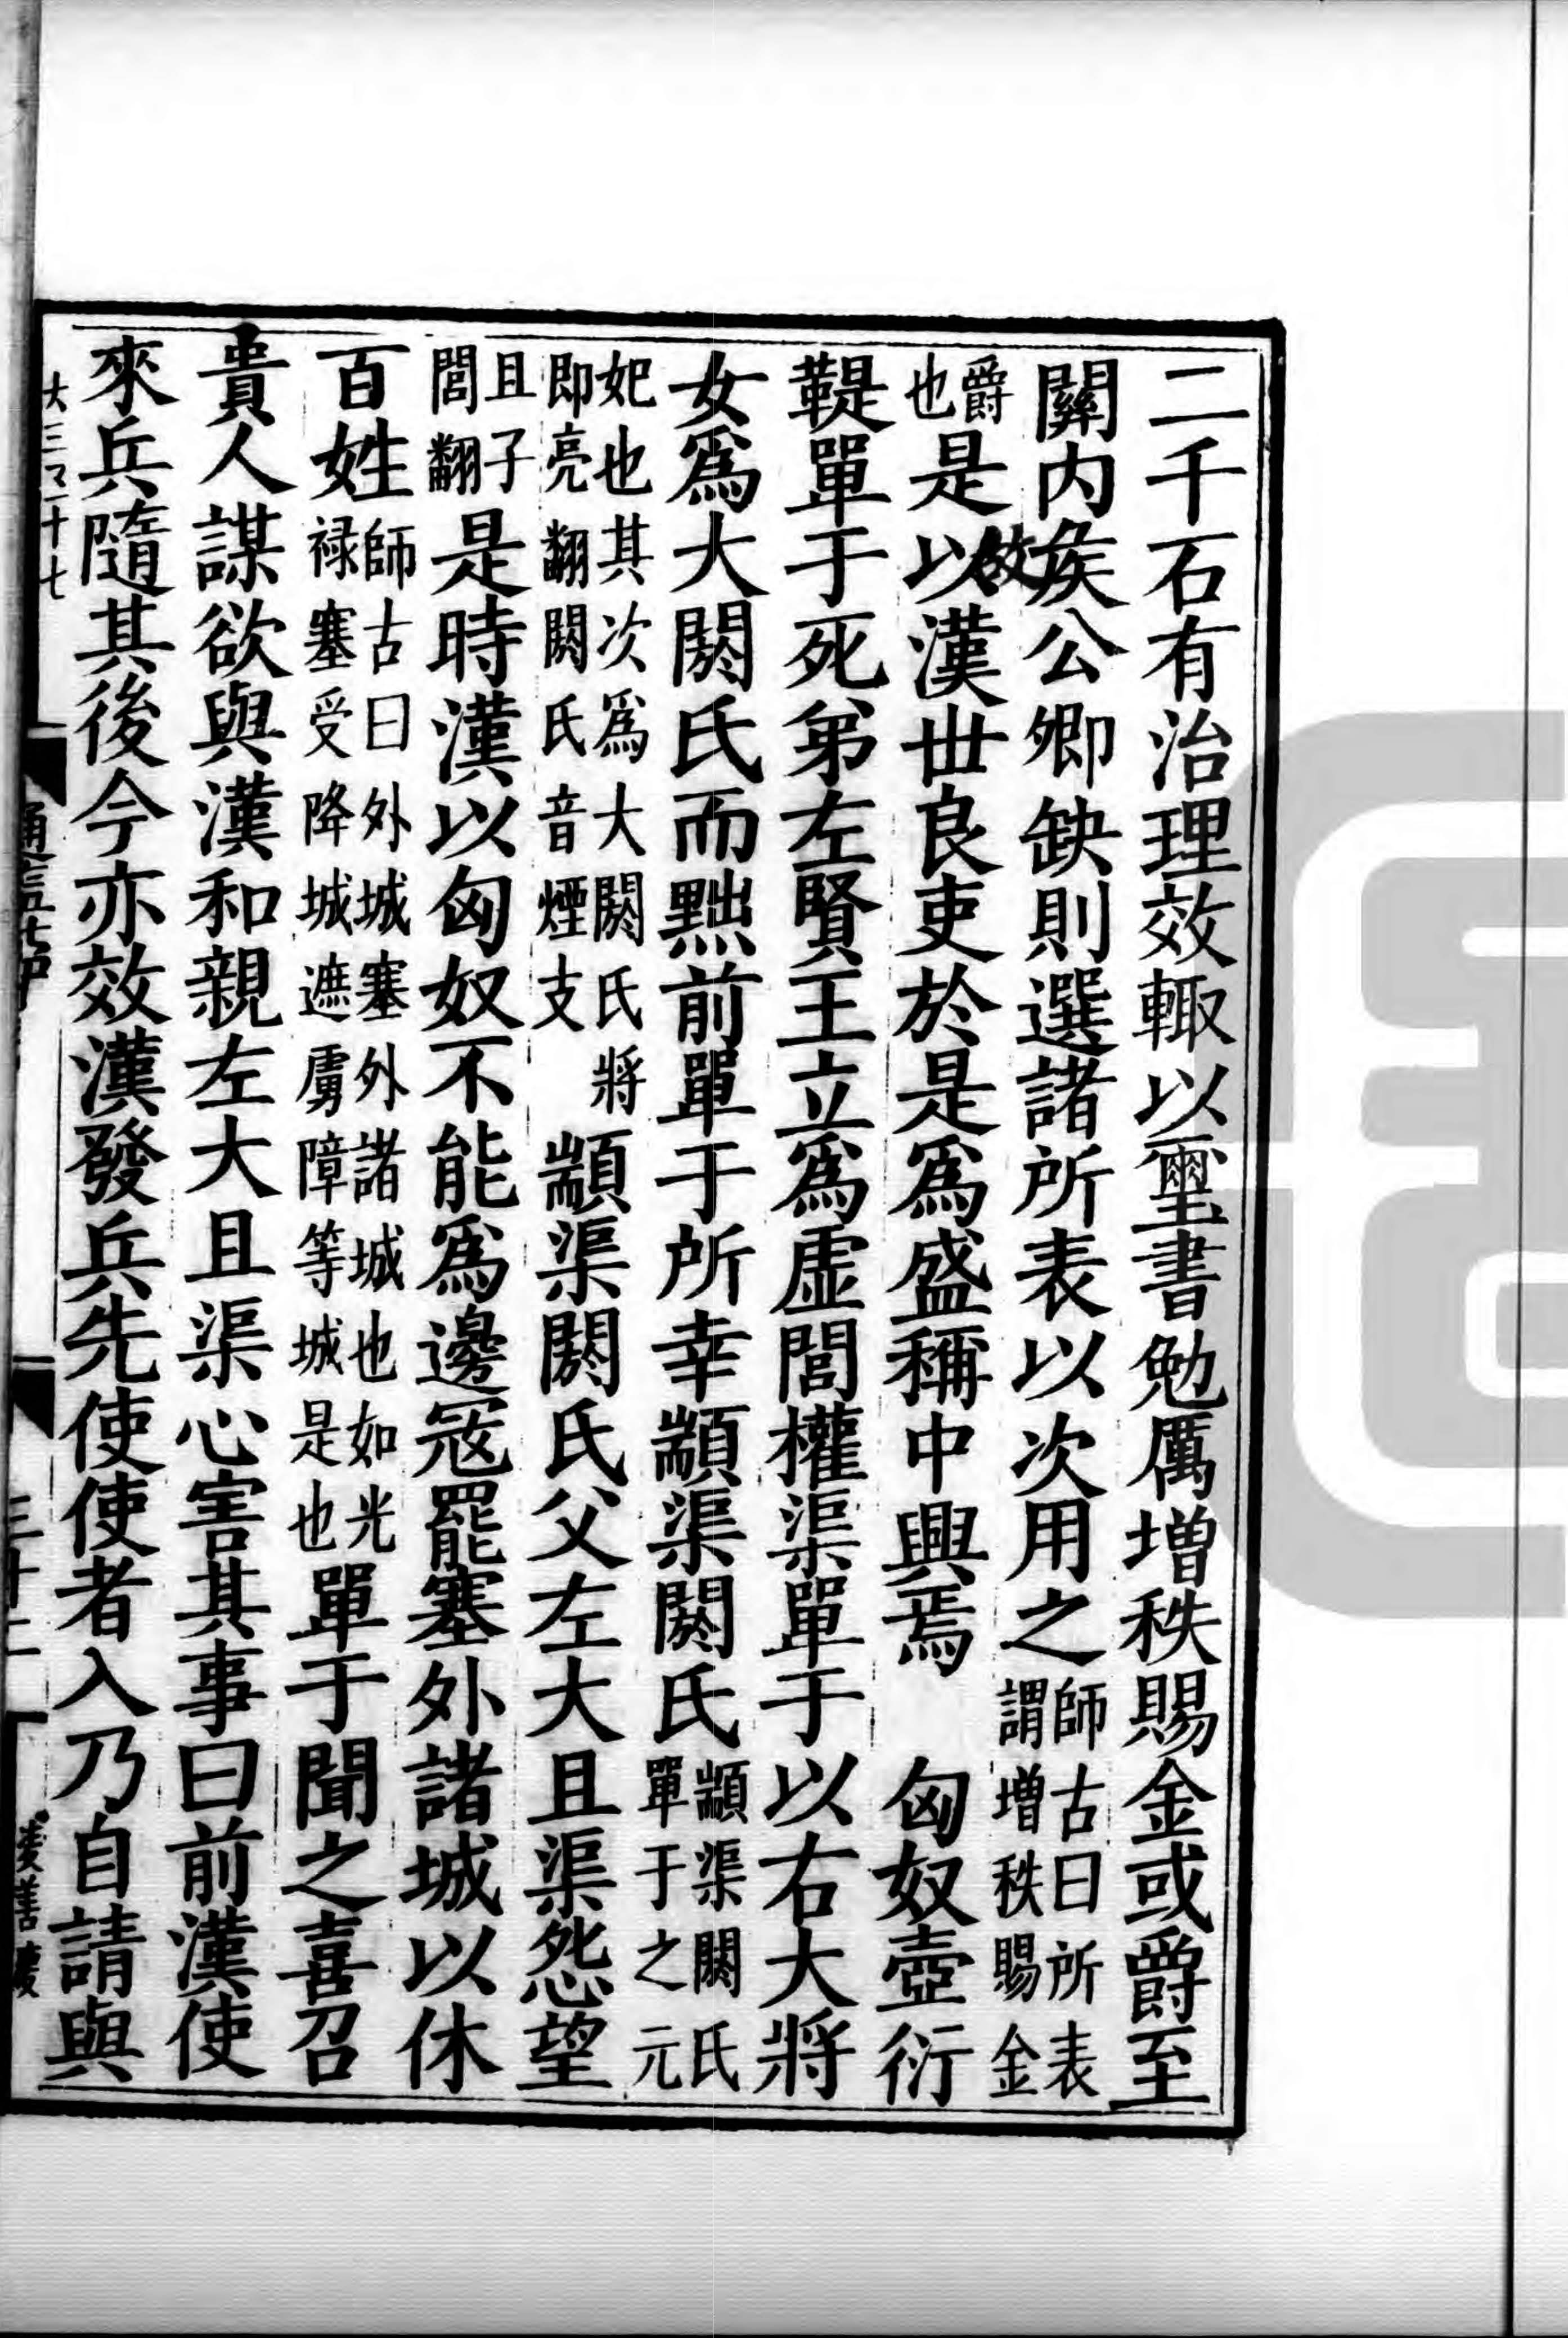 二千石有治理效輙以璽書勉厲增秩賜金或爵至
關内侯公卿缺則選諸所表以次用之師古曰所表謂增秩賜金
爵也是以漢世良吏於是爲盛稱中興焉　匈奴壺衍
鞮單于死弟左賢王立爲虛閭權渠單于以右大將
女爲大閼氏而黜前單于所幸顓渠閼氏顓渠閼氏單于之元
妃也其次爲大閼氏將即亮翻閼氏音煙支顓渠閼氏父左大且渠怨望
且子閭翻是時漢以匈奴不能爲邊寇罷塞外諸城以休
百姓師古曰外城塞外諸城也如光禄塞受降城遮虜障等城是也單于聞之喜召
貴人謀欲與漢和親左大且渠心害其事曰前漢使
來兵隨其後今亦效漢發兵先使使者入乃自請與
大三マ二十七
三十二